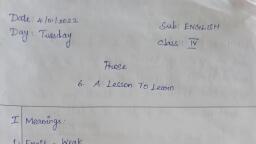 Date: 4/01/2022
Sub: ENGLISH
Day: Tuesday
Class: IV
Prose
6. A Lesson To Learn
I Meanings:
1. Frail - Weak